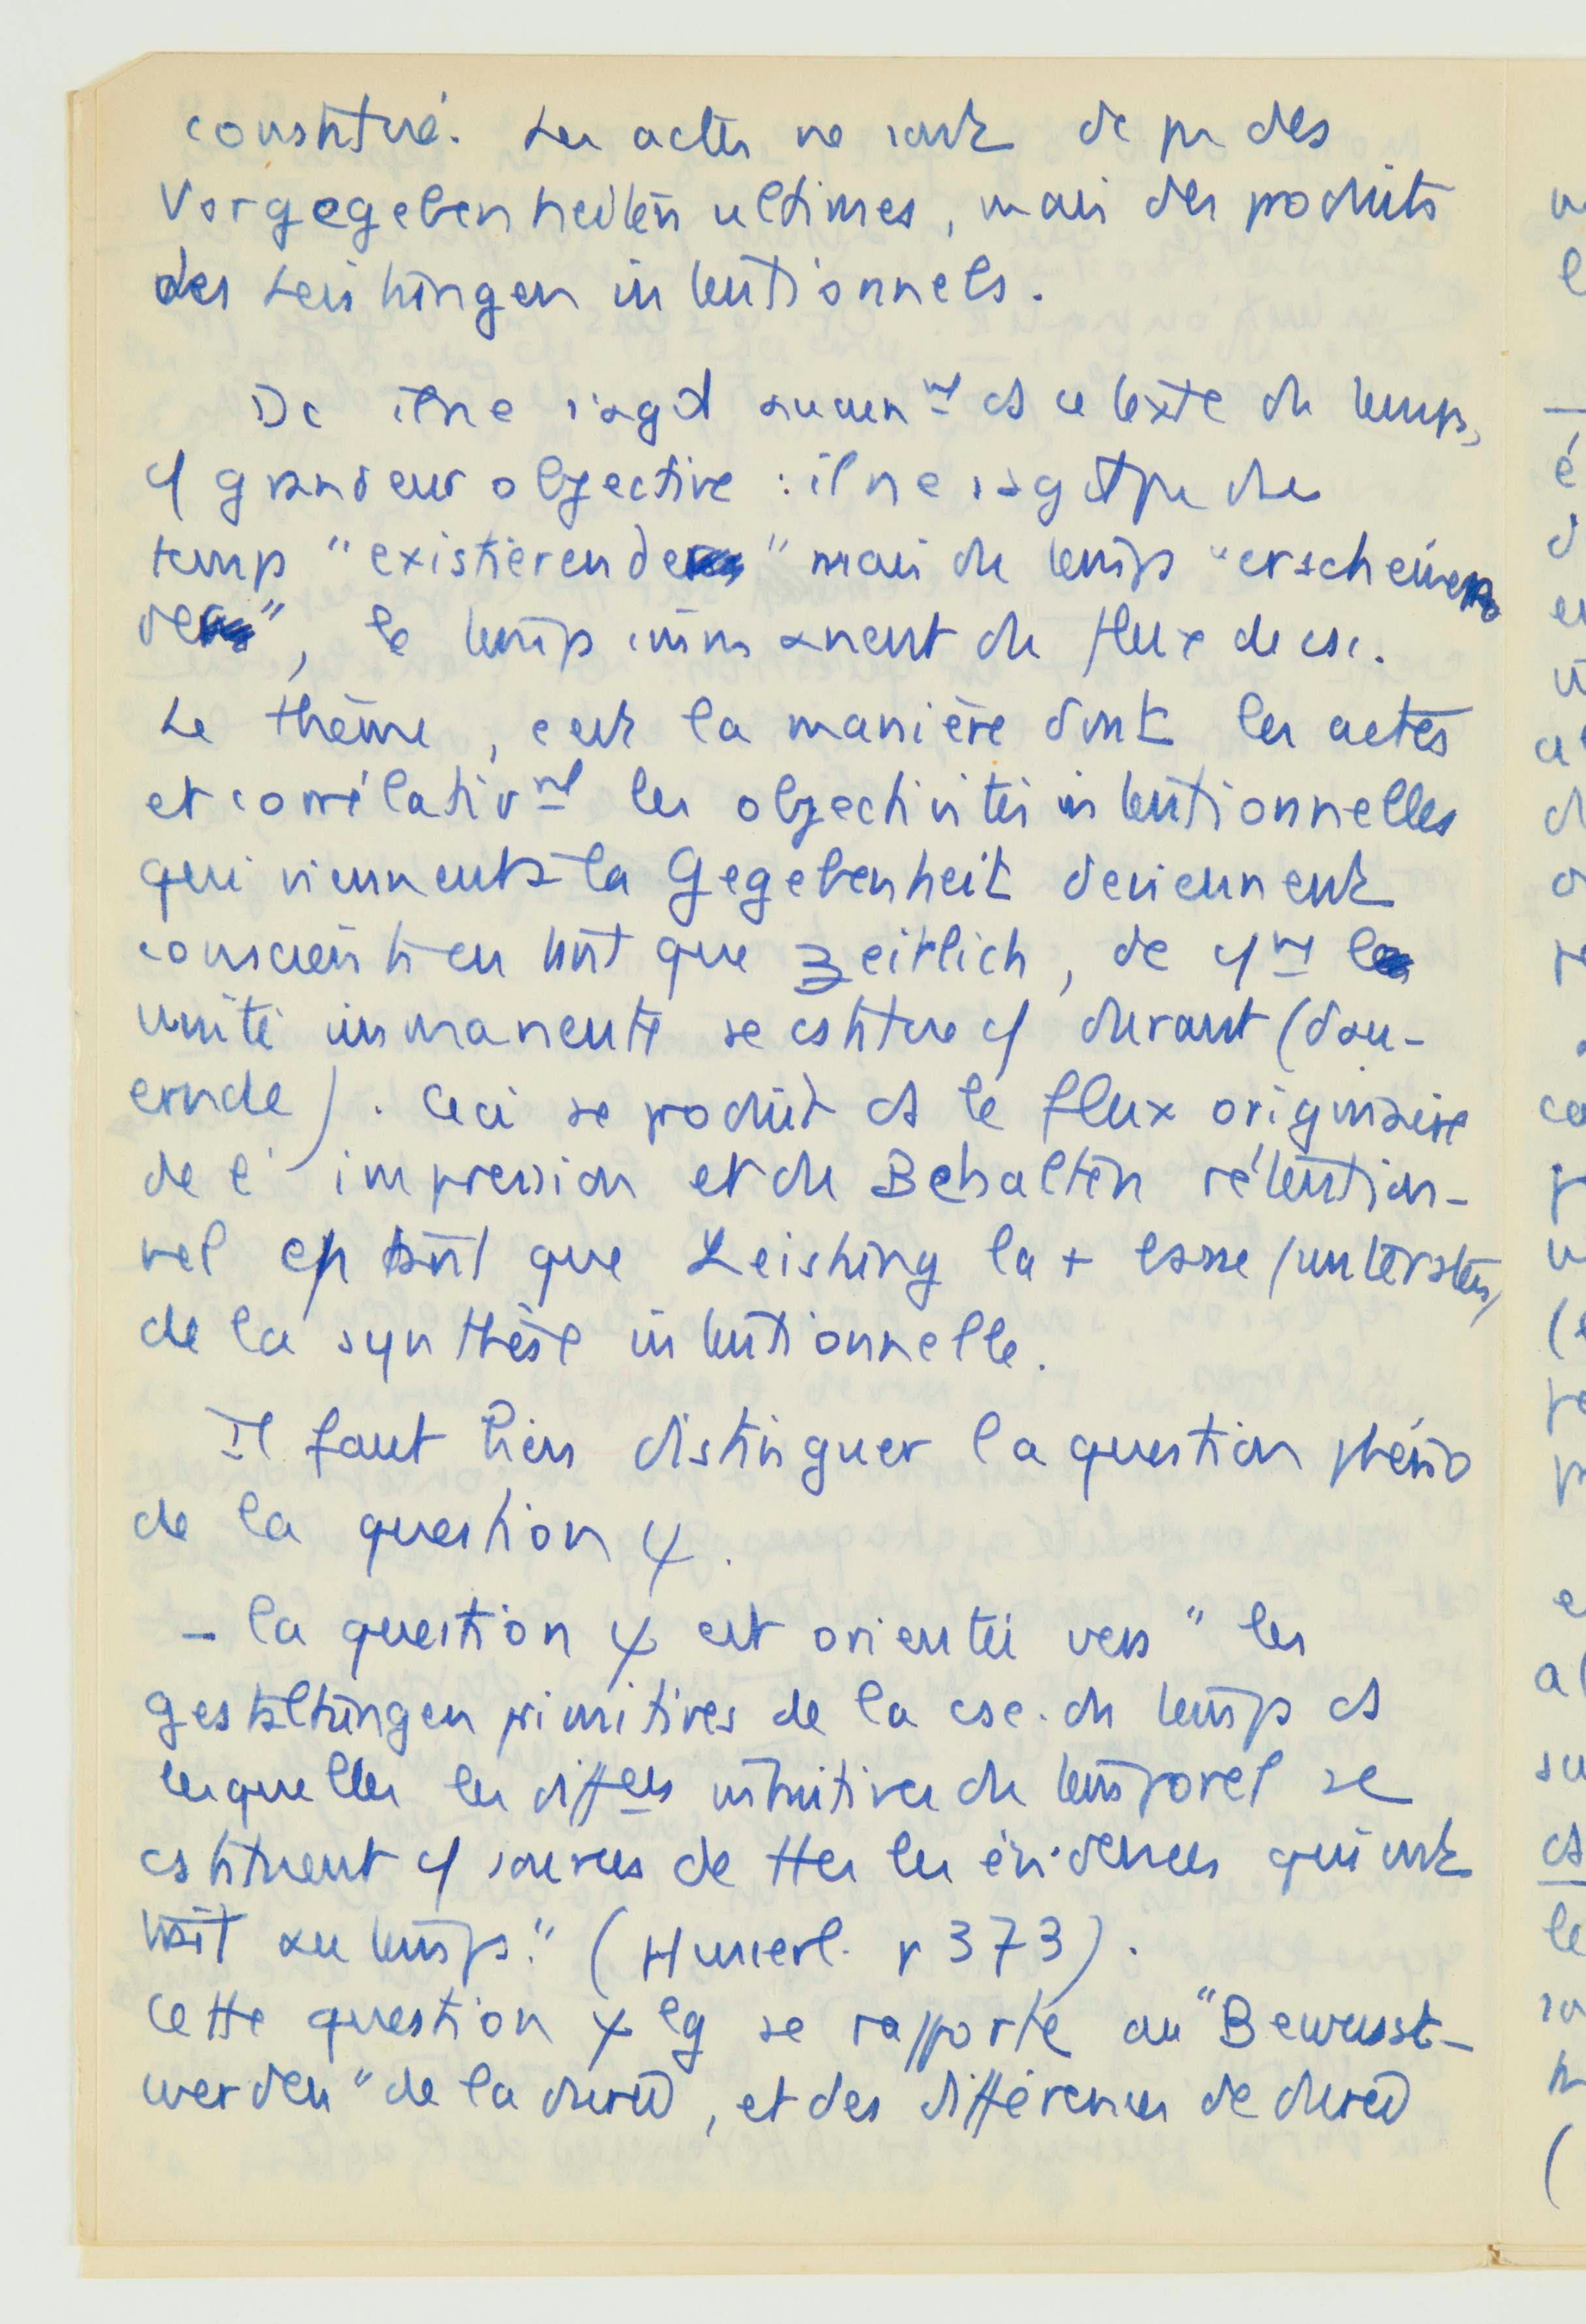 constitué. Les actes ne sont dc pas des
Vorgegebenheiten ultimes, mais des produits
des Leistungen intentionnels.
Dc il ne s'agit aucunmt ds ce texte du temps,
cf grandeur objective : il ne s'agit pas du
temps "existierende" mais du temps "erscheinen
de", le temps immanent du flux de csc.
Le thème, c'est la manière dont les actes
et corrélativmt les objectivités intentionnelles
qui viennent à la Gegebenheit deviennent
conscients en tant que zeitlich, de cfmt
unité immanente se cstitue cf durant (dau-
ernde). Ceci se produit ds le flux originaire
de l'impression et du Behalten rétention-
nel en tant que Leistung la + basse (untersten)
de la synthèse intentionnelle.
Il faut bien distinguer la question phéno
de la question ψ.
- la question ψ est orientée vers "les
gestaltungen primitives de la csc. du temps ds
lesquelles les diffces intuitives du temporel se
cstituent cf sources de ttes les évidences qui ont
trait au temps." (Husserl. p 373).
Cette question ψ lg se rapporte au "Bewusst-
werden" de la durée, et des différences de durée